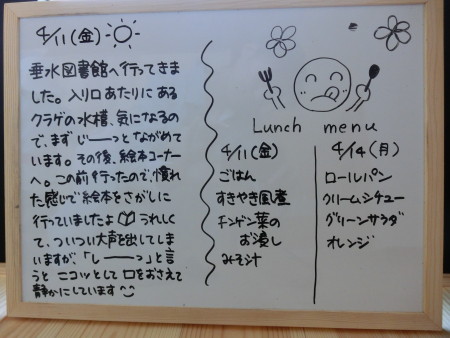 4/11(金)
垂水図書館へ行ってきま
した。入り口あたりにある
クラゲの水槽、気になるの
で、まずじーっとながめて
います。その後、絵本コーナー
へ。この前行ったので、慣れ
た感じで絵本をさがしに
行っていましたよ うれしく
て、ついつい大声を出してしま
いますが、「しーーっ」と言
うと ニコッとして口をおさえて
静かにしています
Lunch menu
4/11(金)
ごはん
すきやき風煮
チンゲン菜の
お浸し
みそ汁
4/14(月)
ロールパン
クリームシチュー
グリーンサラダ
オレンジ